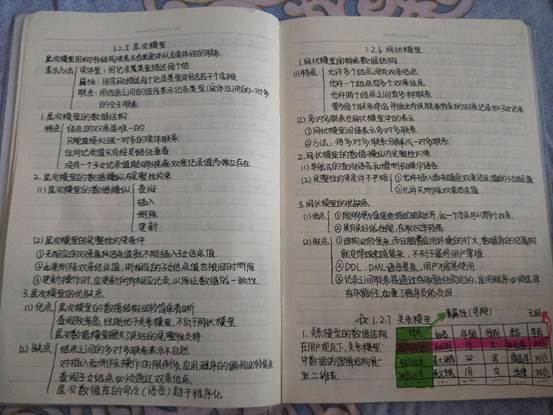 1.2.5 层次模型
层次模型用树形结构来表示各类实体以及实体间的联系
表示方法 实体型：用记录类型描述每个结点
属性：用字段描述每个记录类型可包含若干个字段
联系：用结点之间的连线表示记录类型(实体)之间的一对多
的父子联系
1.层次模型的数据结构
特点 结点的双亲是唯一的
只能直接处理一对多的实体联系
任何记录值只有按其路径查看
没有一个子女记录值能够脱离双亲记录值而独立存在
2.层次模型的数据操纵与完整性约束
(1)层次模型的数据操纵 查询
插入
删除
更新
(2)层次模型的完整性约束条件
①无相应的双亲结点值就不能插入子女结点值
②如果删除双亲结点值,则相应的子女结点值也被同时删除
③更新操作时,应更新所有相应记录,以保证数据的一致性
3.层次模型的优缺点
(1)优点 层次模型的数据结构比较简单清晰
查询效率高,性能优于关系模型,不低于网状模型
层次数据模型提供了良好的完整性支持
(2)缺点 结点之间的多对多联系表示不自然
对插入和删除操作的限制多,应用程序的编写比较复杂
查询子女结点必须通过双亲结点
层次数据库的命令(语言)趋于程序化
1.2.6 网状模型
1.网状模型的数据结构
(1)特点 允许多个结点没有双亲结点
允许一个结点有多个双亲结点
允许两个结点之间有多种联系
要为每个联系命名,并指出与该联系有关的双亲记录和子女记录
(2)多对多联系在网状模型中的表示
①网状模型间接表示多对多联系
②方法：将多对多联系分解成一对多联系
2.网状模型的数据操纵与完整性约束
(2)完整性约束条件不严格 ①允许插入尚未确定双亲结点值的子女结点值
②允许只删除双亲结点值
3.网状模型的优缺点
(1)优点 ①能够更为直接地描述现实世界,如一个结点可以有多个双亲
②具有良好的性能,存取效率较高
(2)缺点 ①结构比较复杂,而且随着应用环境的扩大,数据库的结构
就变得越来越复杂,不利于最终用户掌握
②DDL、DML语言复杂,用户不容易使用
③记录之间联系是通过存取路径实现的,应用程序必须选择
存取路径,加重了程序员的负担
1.2.7 关系模型
属性(字段)
元组
1.关系模型的数据结构
在用户观点下,关系模型
中数据的逻辑结构是一
张二维表